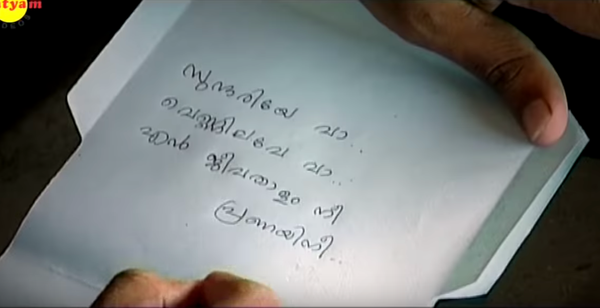 സുന്ദരിയേ വാ..
വെണ്ണിലവേ വാ...
എൻ ജീവതാളം നീ
പ്രണയിനീ..